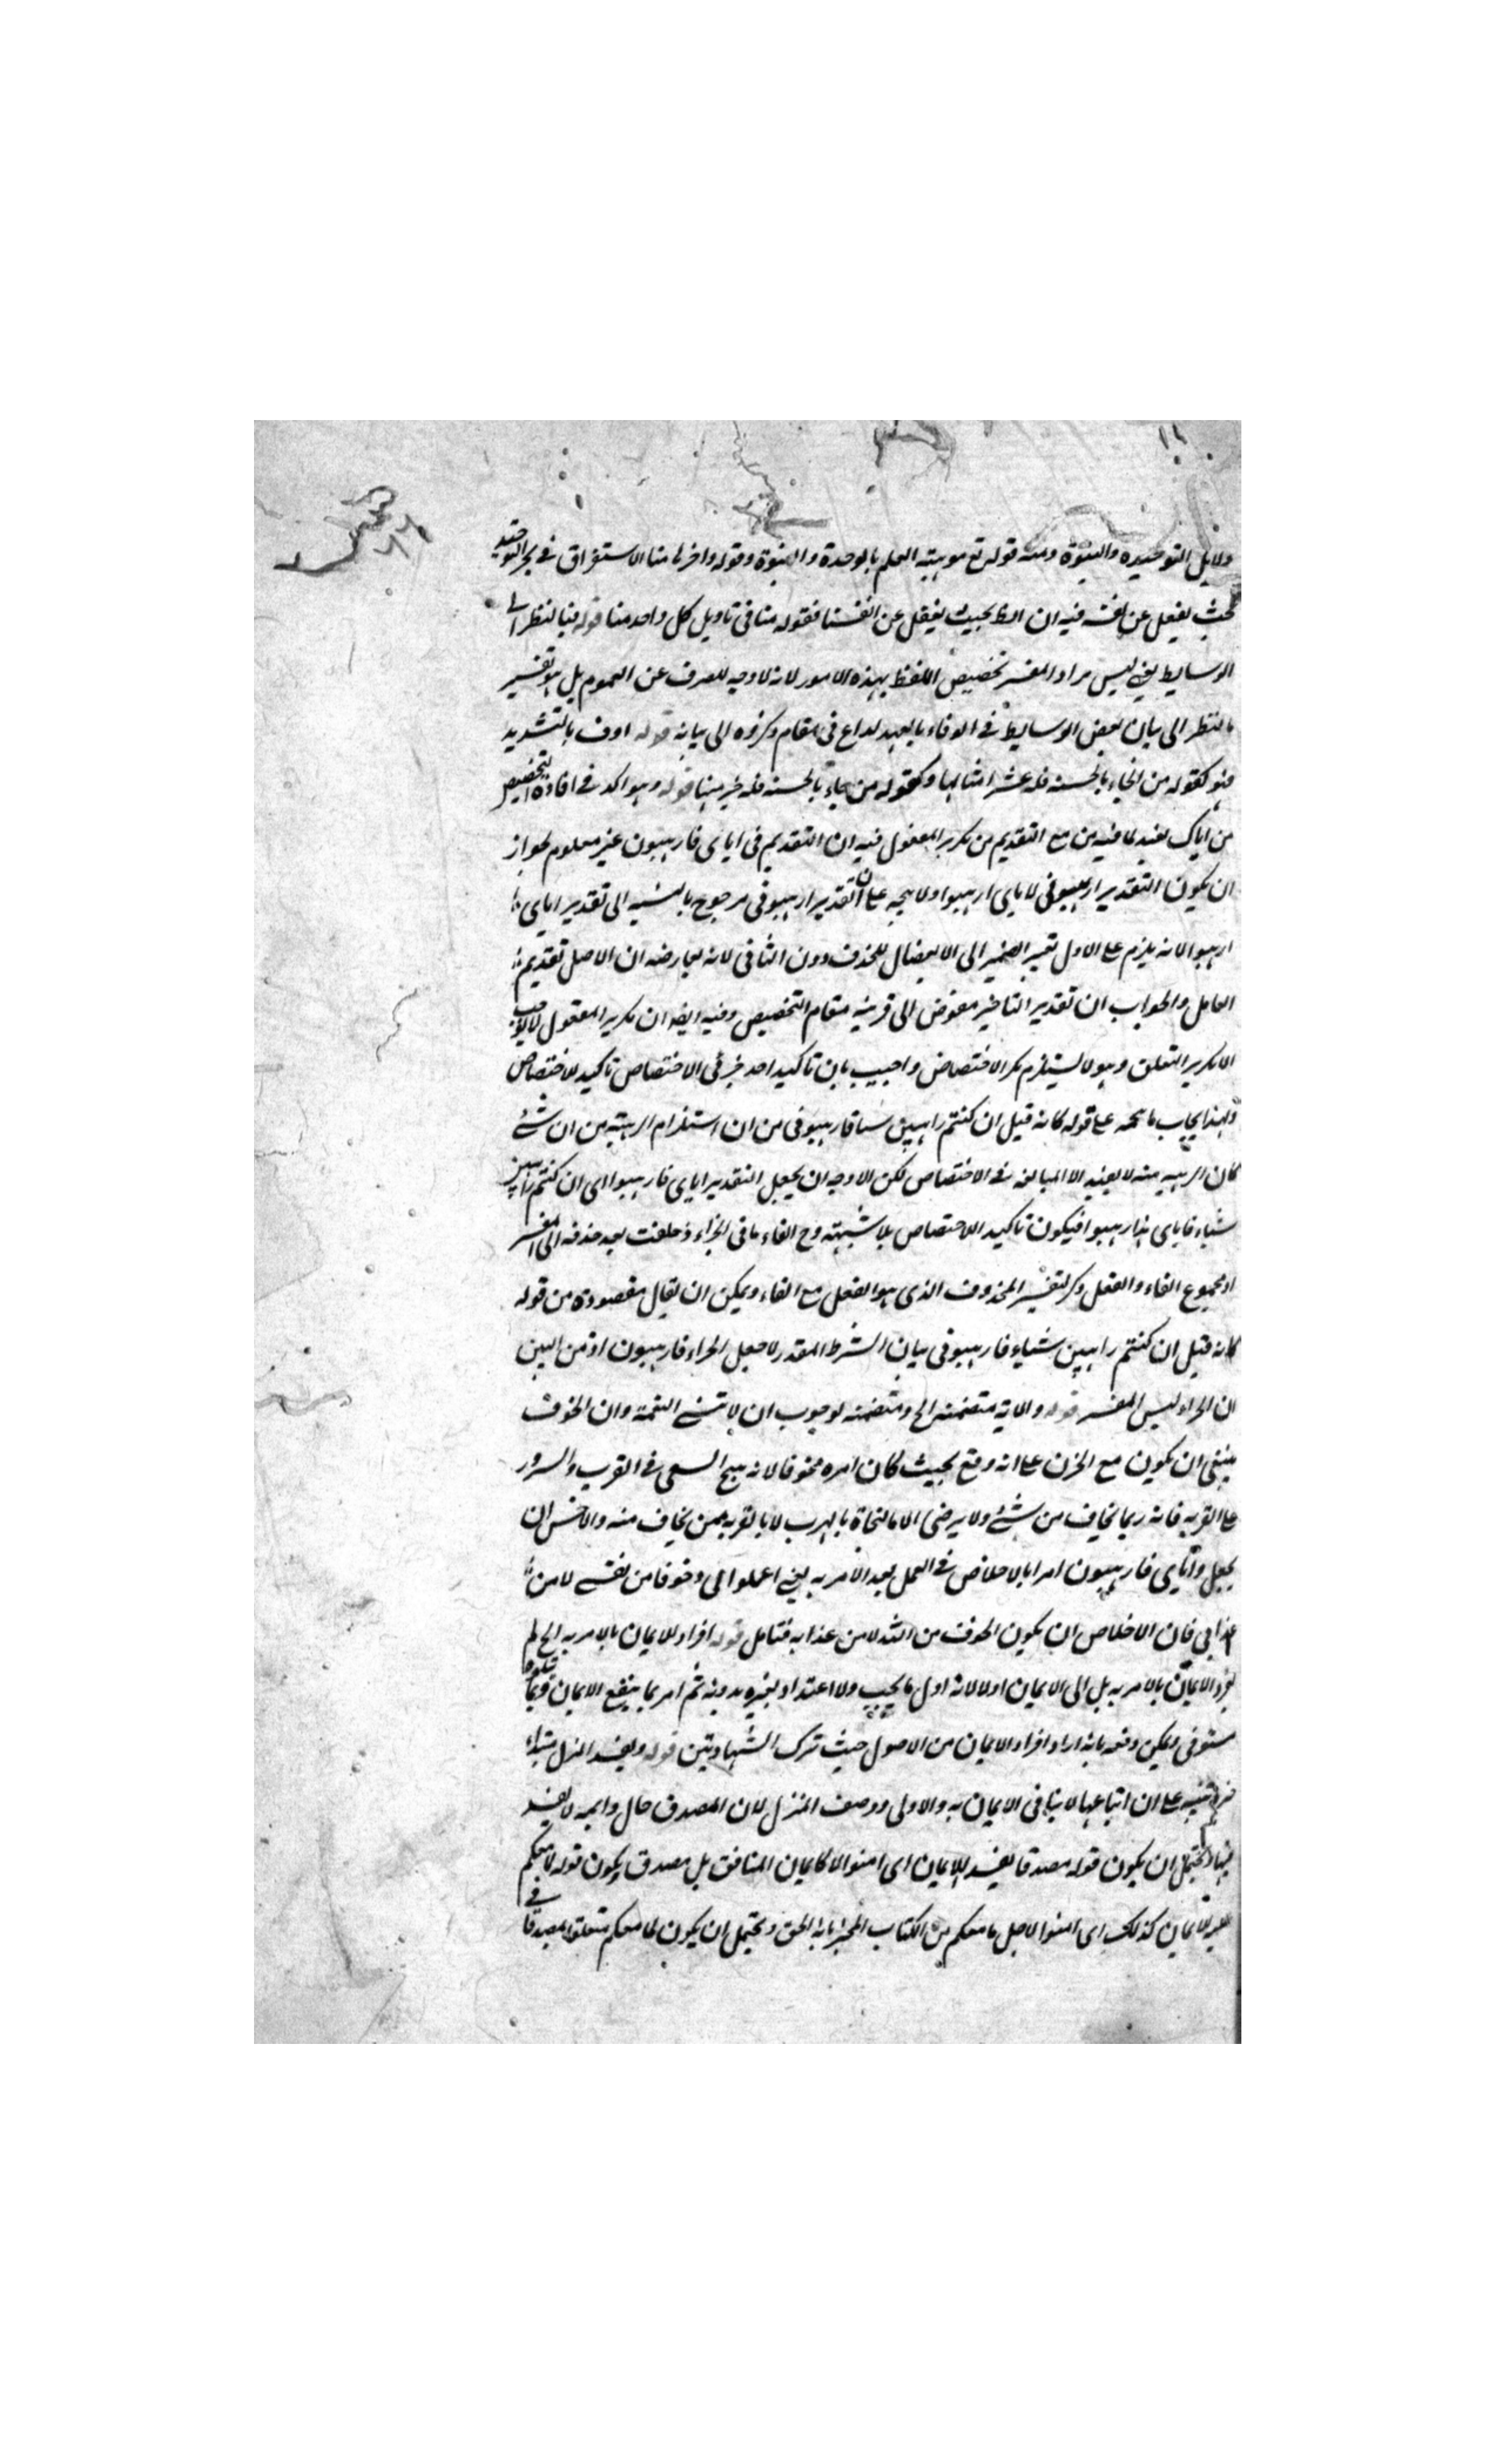 دلايل التوحيد والنبوة ومنه قوله تع موهبته العلم بالوحدة والنبوة وقوله واخرها منا الاستغراق في بحر التوحيد
بحيث يغفل عن نفسه فيه ان الظ بحيث يغفل عن انفسنا فقوله منا في تاويل كل واحد منا قوله فبالنظر الى
الوسايط يعني ليس مراد المفسر تخصيص اللفظ بهذه الامور لانه لا وجه للصرف عن العموم بل هو تفسير
بالنظر الى بيان بعض الوسايط في الوفاء بالعهد لداع في المقام وكزوه الى بيانه قوله اوف بالتشديد
فهو كقوله من جاء بالحسنة فله عشر امثالها وكقوله من جاء بالحسنة فله خير منها قوله وهو اكد في افادة التخصيص
من اياك نعبد لما فيه من مع التقديم من تكرير المفعول فيه ان التقديم في اياى فارهبون غير معلوم لجواز
ان يكون التقدير ارهبوني لا اياى ارهبوا ولا يتجه على ان التقدير ارهبوني مرجوح بالنسبة الى تقدير اياى
ارهبوا لانه يلزم على الاول تغيير الضمير الى الانفصال للحذف دون الثاني لانه يعارضه ان الاصل تقديم
العامل والجواب ان تقدير التاخير مفوض الى قرينة مقام التخصيص وفيه ايضا ان تكرير المفعول لا يوجب
الا تكرير التعلق وهو لا يستلزم تكرر الاختصاص واجيب بان تاكيد احد جزئي الاختصاص تاكيد للاختصاص
وبهذا يجاب ما يتجه على قوله كانه قيل ان كنتم راهبين شيئا فارهبوني من ان استلزام الرهبة من ان شئ
كان الرهبة منه لا يفيد الا المبالغة في الاختصاص لكن الاوجه ان يجعل التقدير اياى فارهبوا اى ان كنتم راهبين
شياء فاياى هذا ارهبوا فيكون تاكيد الاختصاص بلا شبهة وح الفاء ما في الجزاء زحلفت بعد حذفه الى المفسر
او مجموع الفاء والفعل وكر لتفسير المحذوف الذى هو الفعل مع الفاء ويمكن ان يقال مقصوده من قوله
كانه قيل ان كنتم راهبين شياء فارهبوني بيان الشرط المقدر لا جعل الجزاء فارهبون اذ من البين
ان الجزاء ليس المفسر قوله والاية متضمنة الخ ومتضمنة لوجوب ان لا تنسى النعمة وان الخوف
ينبغى ان يكون مع الحزن على انه وقع بحيث كان امره مخوفا لانه يهيج السعى في القرب والسرور
على القربة فانه ربما يخاف من شئ ولا يرضى الا بالنجاة بالهرب لا بالقربة ممن يخاف منه والاحسن ان
يجعل واياى فارهبون امرا بالاخلاص في العمل بعد الامر به يعني اعملوا لى وخوفا من نفسى لا من
عذابى فان الاخلاص ان يكون الخوف من الله لا من عذابه فتامل قوله افراد للايمان بالامر به الخ لم
يفرد الايمان بالامر به بل الى الايمان اولا لانه اول ما يجب ولا اعتداد بغيره بدونه ثم امر بما ينفع الايمان
مستوفى ويمكن دفعه بانه اراد افراد الايمان من الاصول حيث ترك الشهادتين قوله وتقييد المنزل
تنبيه على ان اتباعها لا ينافى الايمان به والاولى ووصف المنزل لان المصدق حال وانه لا تقييد
فيها ويحتمل ان يكون قوله مصدقا تقييد للايمان اى امنوا لا كايمان المنافق بل مصدق ويكون قوله لما معكم
للايمان كذلك اى امنوا لاجل ما معكم من الكتاب المخبر بانه الحق ويحتمل ان يكون لما معكم متعلقا بمصدقا